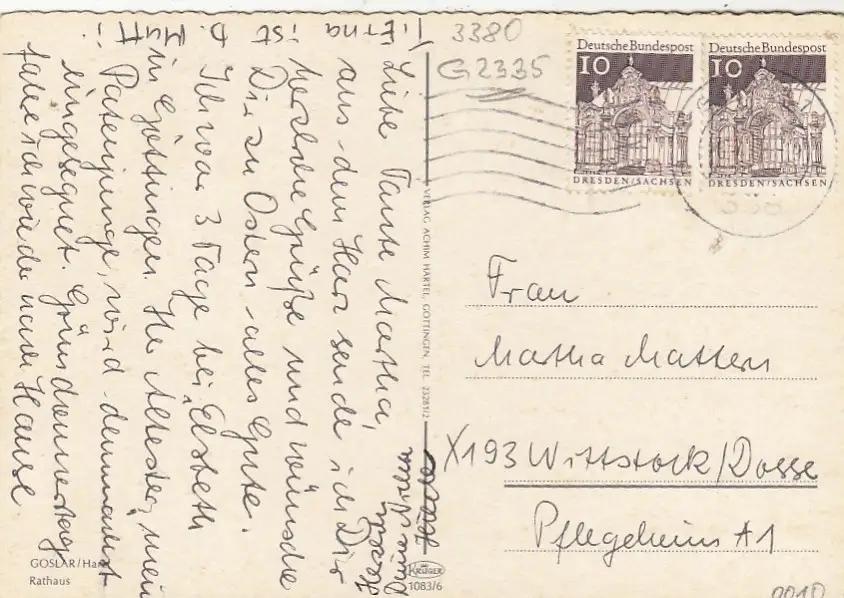 Liebe Tante Martha,
aus dem Harz sende ich Dir
herzliche Grüße und wünsche
Dir zu Ostern alles Gute.
Ich war 3 Tage bei Elsbeth
in Göttingen. Ihr Ältester, mein
Patenjunge, wird demnächst
eingesegnet. Gründonnerstag
fahre ich wieder nach Hause.
Herzlichst
Deine Nichte
Erna ist
3380
G2335
Deutsche Bundespost
10
DRESDEN/SACHSEN
Deutsche Bundespost
10
DRESDEN/SACHSEN
Frau
Martha Mattern
X193 Wittstock/Dosse
Pflegeheim A1
VERLAG ACHIM HARTEL, GÖTTINGEN, TEL. 23281/2
GOSLAR/Harz
Rathaus
KRÜGER
1083/6